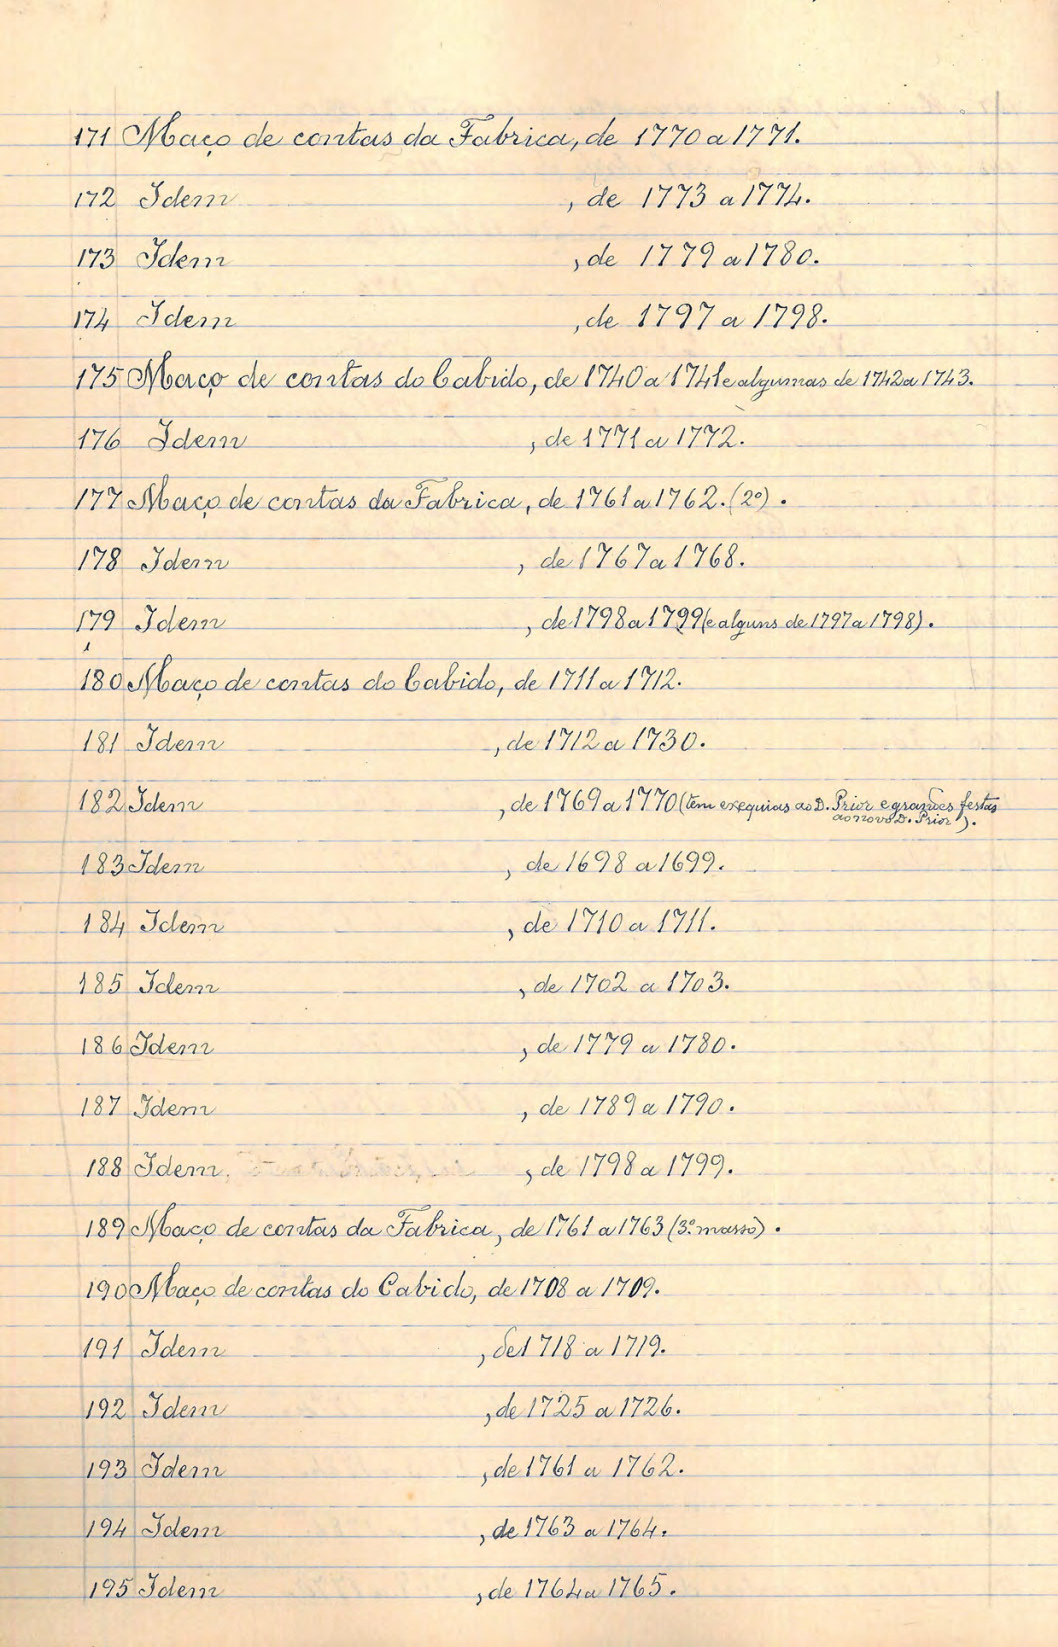 171 Maço de contas da Fabrica, de 1770 a 1771.
172 Idem , de 1773 a 1774.
173 Idem , de 1779 a 1780.
174 Idem , de 1797 a 1798.
175 Maço de contas do Cabido, de 1740 a 1741 e algumas de 1742 a 1743.
176 Idem , de 1771 a 1772.
177 Maço de contas da Fabrica, de 1761 a 1762. (2º) .
178 Idem , de 1767 a 1768.
179 Idem , de 1798 a 1799 (e alguns de 1797 a 1798) .
180 Maço de contas do Cabido, de 1711 a 1712.
181 Idem , de 1712 a 1730.
182 Idem , de 1769 a 1770 (tem exequias ao D. Prior e grandes festas
ao novo D. Prior ) .
183 Idem , de 1698 a 1699.
184 Idem , de 1710 a 1711.
185 Idem , de 1702 a 1703.
186 Idem , de 1779 a 1780.
187 Idem , de 1789 a 1790.
188 Idem, , de 1798 a 1799.
189 Maço de contas da Fabrica, de 1761 a 1763 (3º. masso) .
190 Maço de contas do Cabido, de 1708 a 1709.
191 Idem , de 1718 a 1719.
192 Idem , de 1725 a 1726.
193 Idem , de 1761 a 1762.
194 Idem , de 1763 a 1764.
195 Idem , de 1764 a 1765.